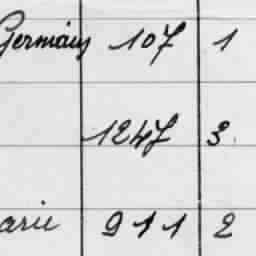 Germain 107 1
1247 3.
arie 911 2